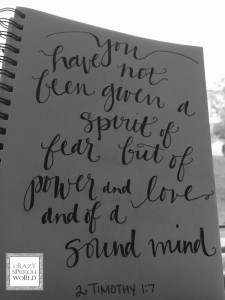 you
have not
been given a
spirit of
fear but of
power and love
and of a
sound mind
2 TIMOTHY 1:7
CRAZY
SPEECH
WORLD